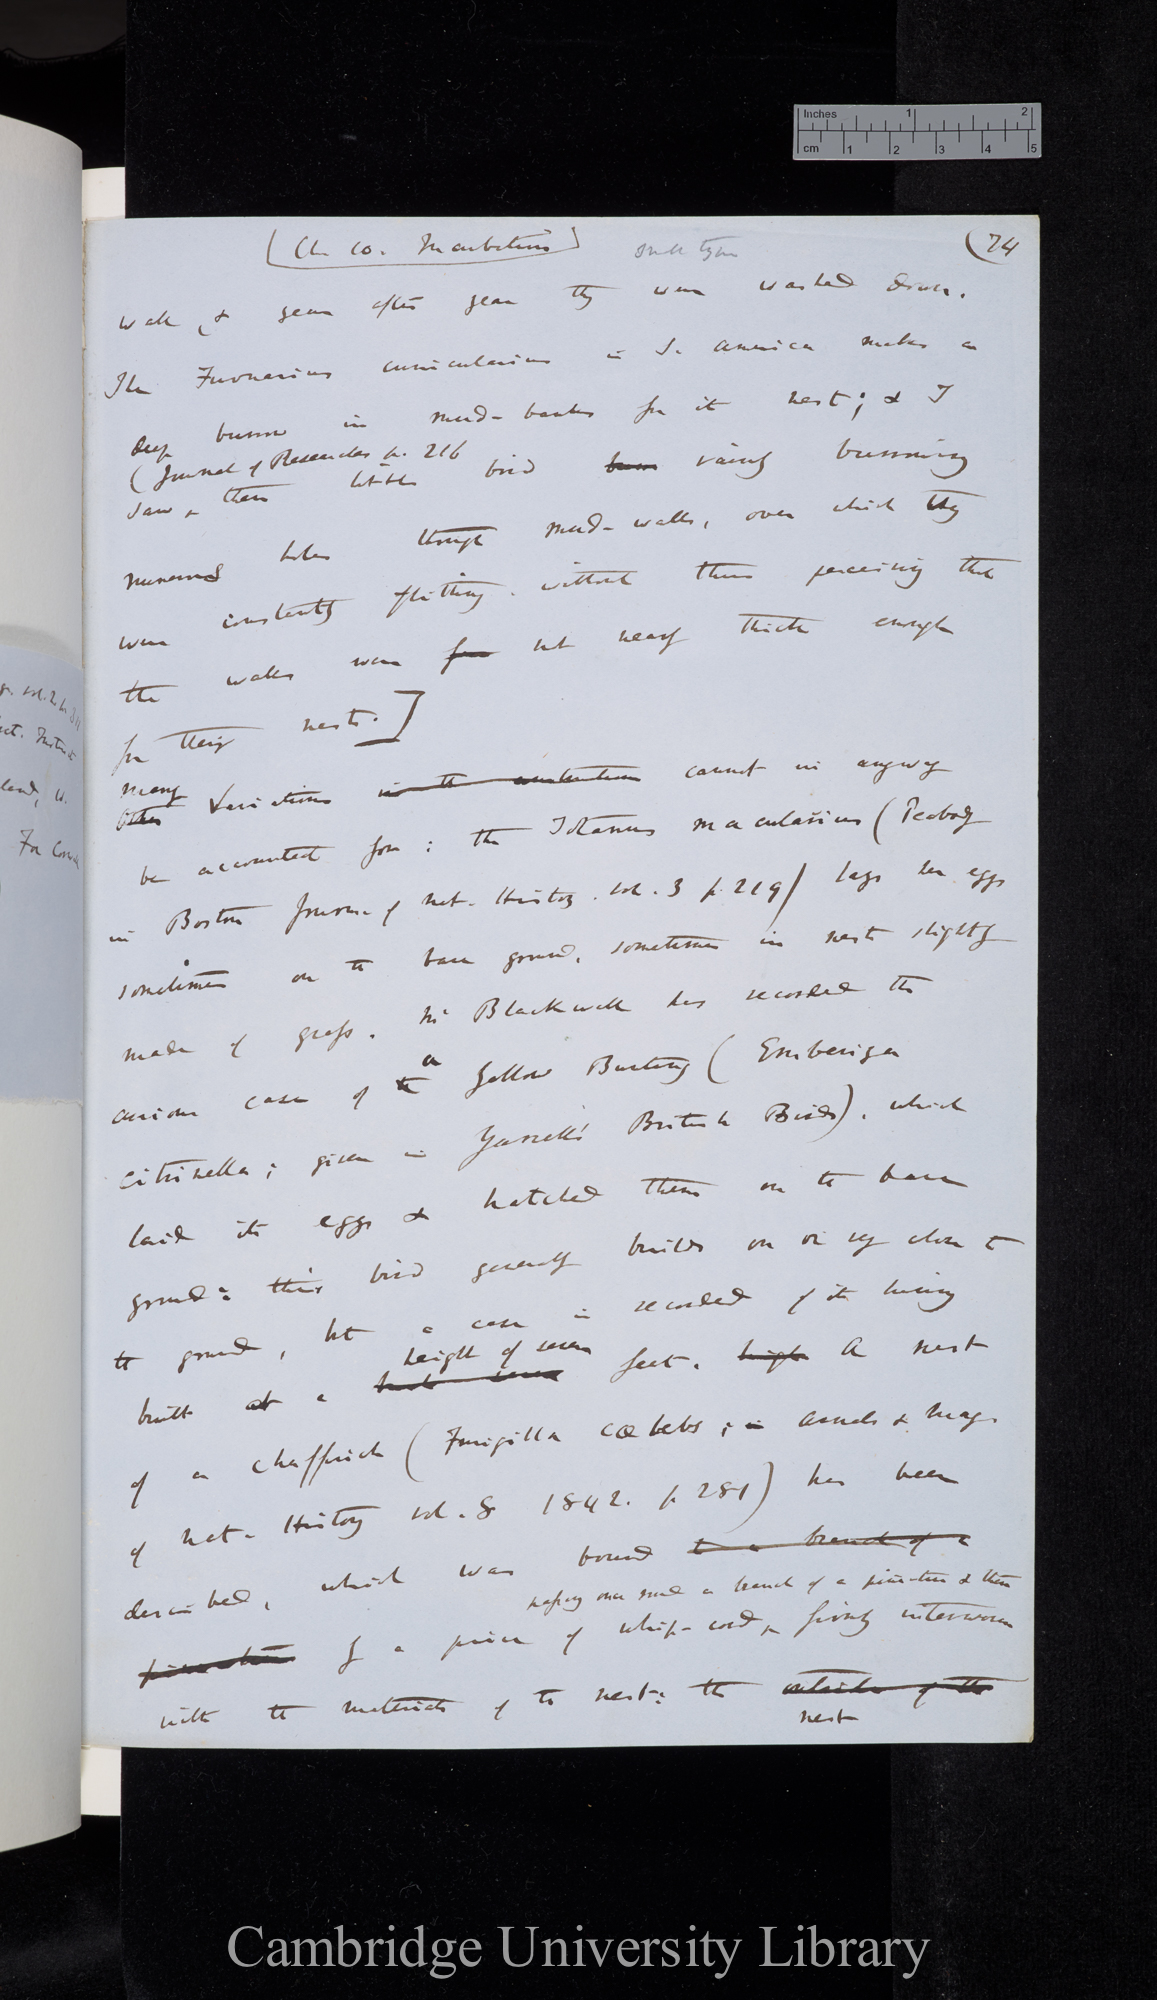 (Ch. 10. Incubation) small type (74
wall, & year after year they were washed down.
The Furnarius cunicularius in S. America makes a
deep burrow in mud-banks for its nest; & I
(Journal of Researches p. 216
saw these little bird vainly burrowing
numerous holes through mud-walls, over which they
were constantly flitting, without thus perceiving that
the walls were not nearly thick enough
for their nests.]
Many
other Variations in the cannot in anyway
be accounted for: the Totanus macularius (Peabody
in Boston Journ. of Nat. History. vol. 3 p. 219) lays her eggs
sometimes on the bare ground, sometimes in nests slightly
made of grass. Mr Blackwall has recorded the
a
curious case of the Yellow Bunting (Emberiza
citrinella; given in Yarrell's British Birds), which
laid its eggs & hatched them on the bare
ground: this bird generally builds on or very close to
the ground, but a case is recorded of its having
height of seven
built at a feet. high A nest
of a chaffinch (Fringilla cœlebs; in Annals & Mag.
of Nat. History vol. 8 1842. p. 281) has been
described, which was bound to a branch of a
passing once round a branch of a pine-tree & then
pine-tree by a piece of whip-cord, firmly interwoven
with the materials of the nest: the outside of the
nest
Inches 1 2
cm 1 2 3 4 5
Cambridge University Library